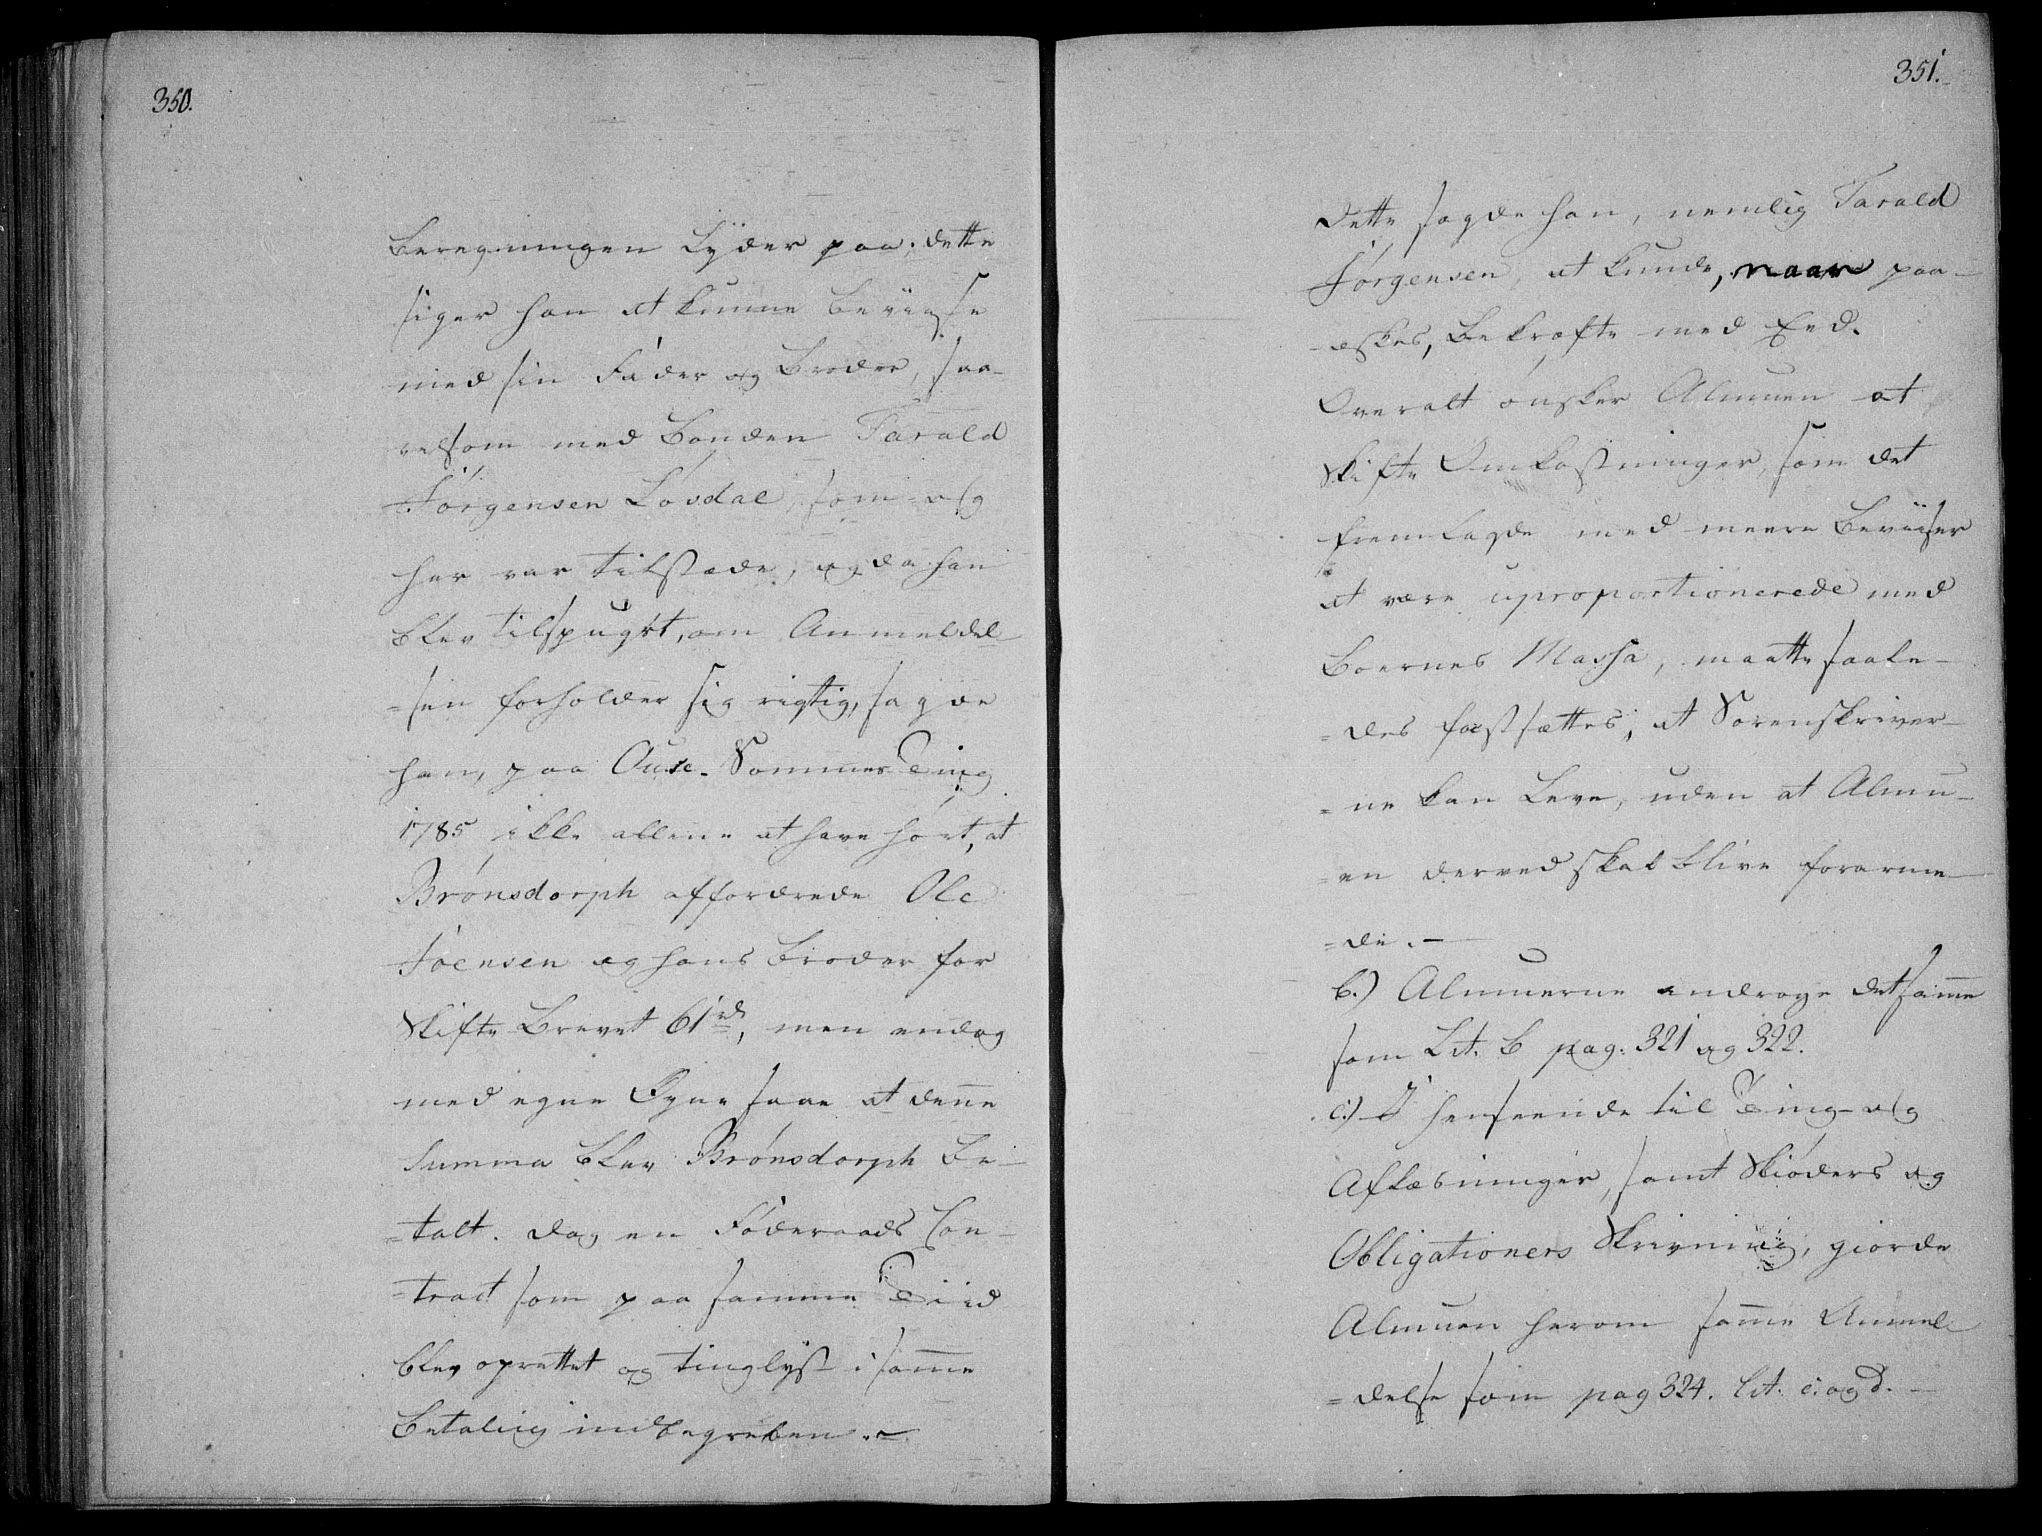 350.
Beregningen lyder paa; dette
siger han at kunne beviise
med sin Fader og Broder, saa-
velsom med Bonden Tarald
Jørgensen Løvdal, som og
her var tilstæde, og da han
blev tilspugt, om Anmeldel-
=sen forholder sig rigtig, sagde
han, paa Ouse-Sommer Ting
1785 ikke allene at have hørt, at
Brønsdorph affordrede Ole
Joensen og hans Broder for
Skifte Brevet 61 rd, men endog
med egne Øyne saae at denne
Summa blev Brønsdorph be-
=talt. dog en Føderaads Con-
=tract som paa samme Tiid
blev oprettet og tinglyst i samme
Betaling indbegreben.-
351.
Dette sagde han, nemlig Tarald
Jørgensen, at kunde, naar paa-
-æskes, bekræfte med Eed.
Overalt ønsker Almuen at
Skifte Omkostninger, som det
fremlagde med meere beviiser
at være uproportionerede med
Boernes Massa, maatte saale-
=des fastsættes, at Sorenskriver-
=ne kan leve, uden at Almu-
=en derved skal blive forarme-
=de.-
b.) Almuerne androge detsamme
som Lit. b pag: 321 og 322.
c.) I henseende til Ting- og
Aflæsninger, samt Skiøders og
Obligationers Skrivning, giorde
Almuen herom samme Anmel-
=delse som pag 324. Lit. c. og d.-